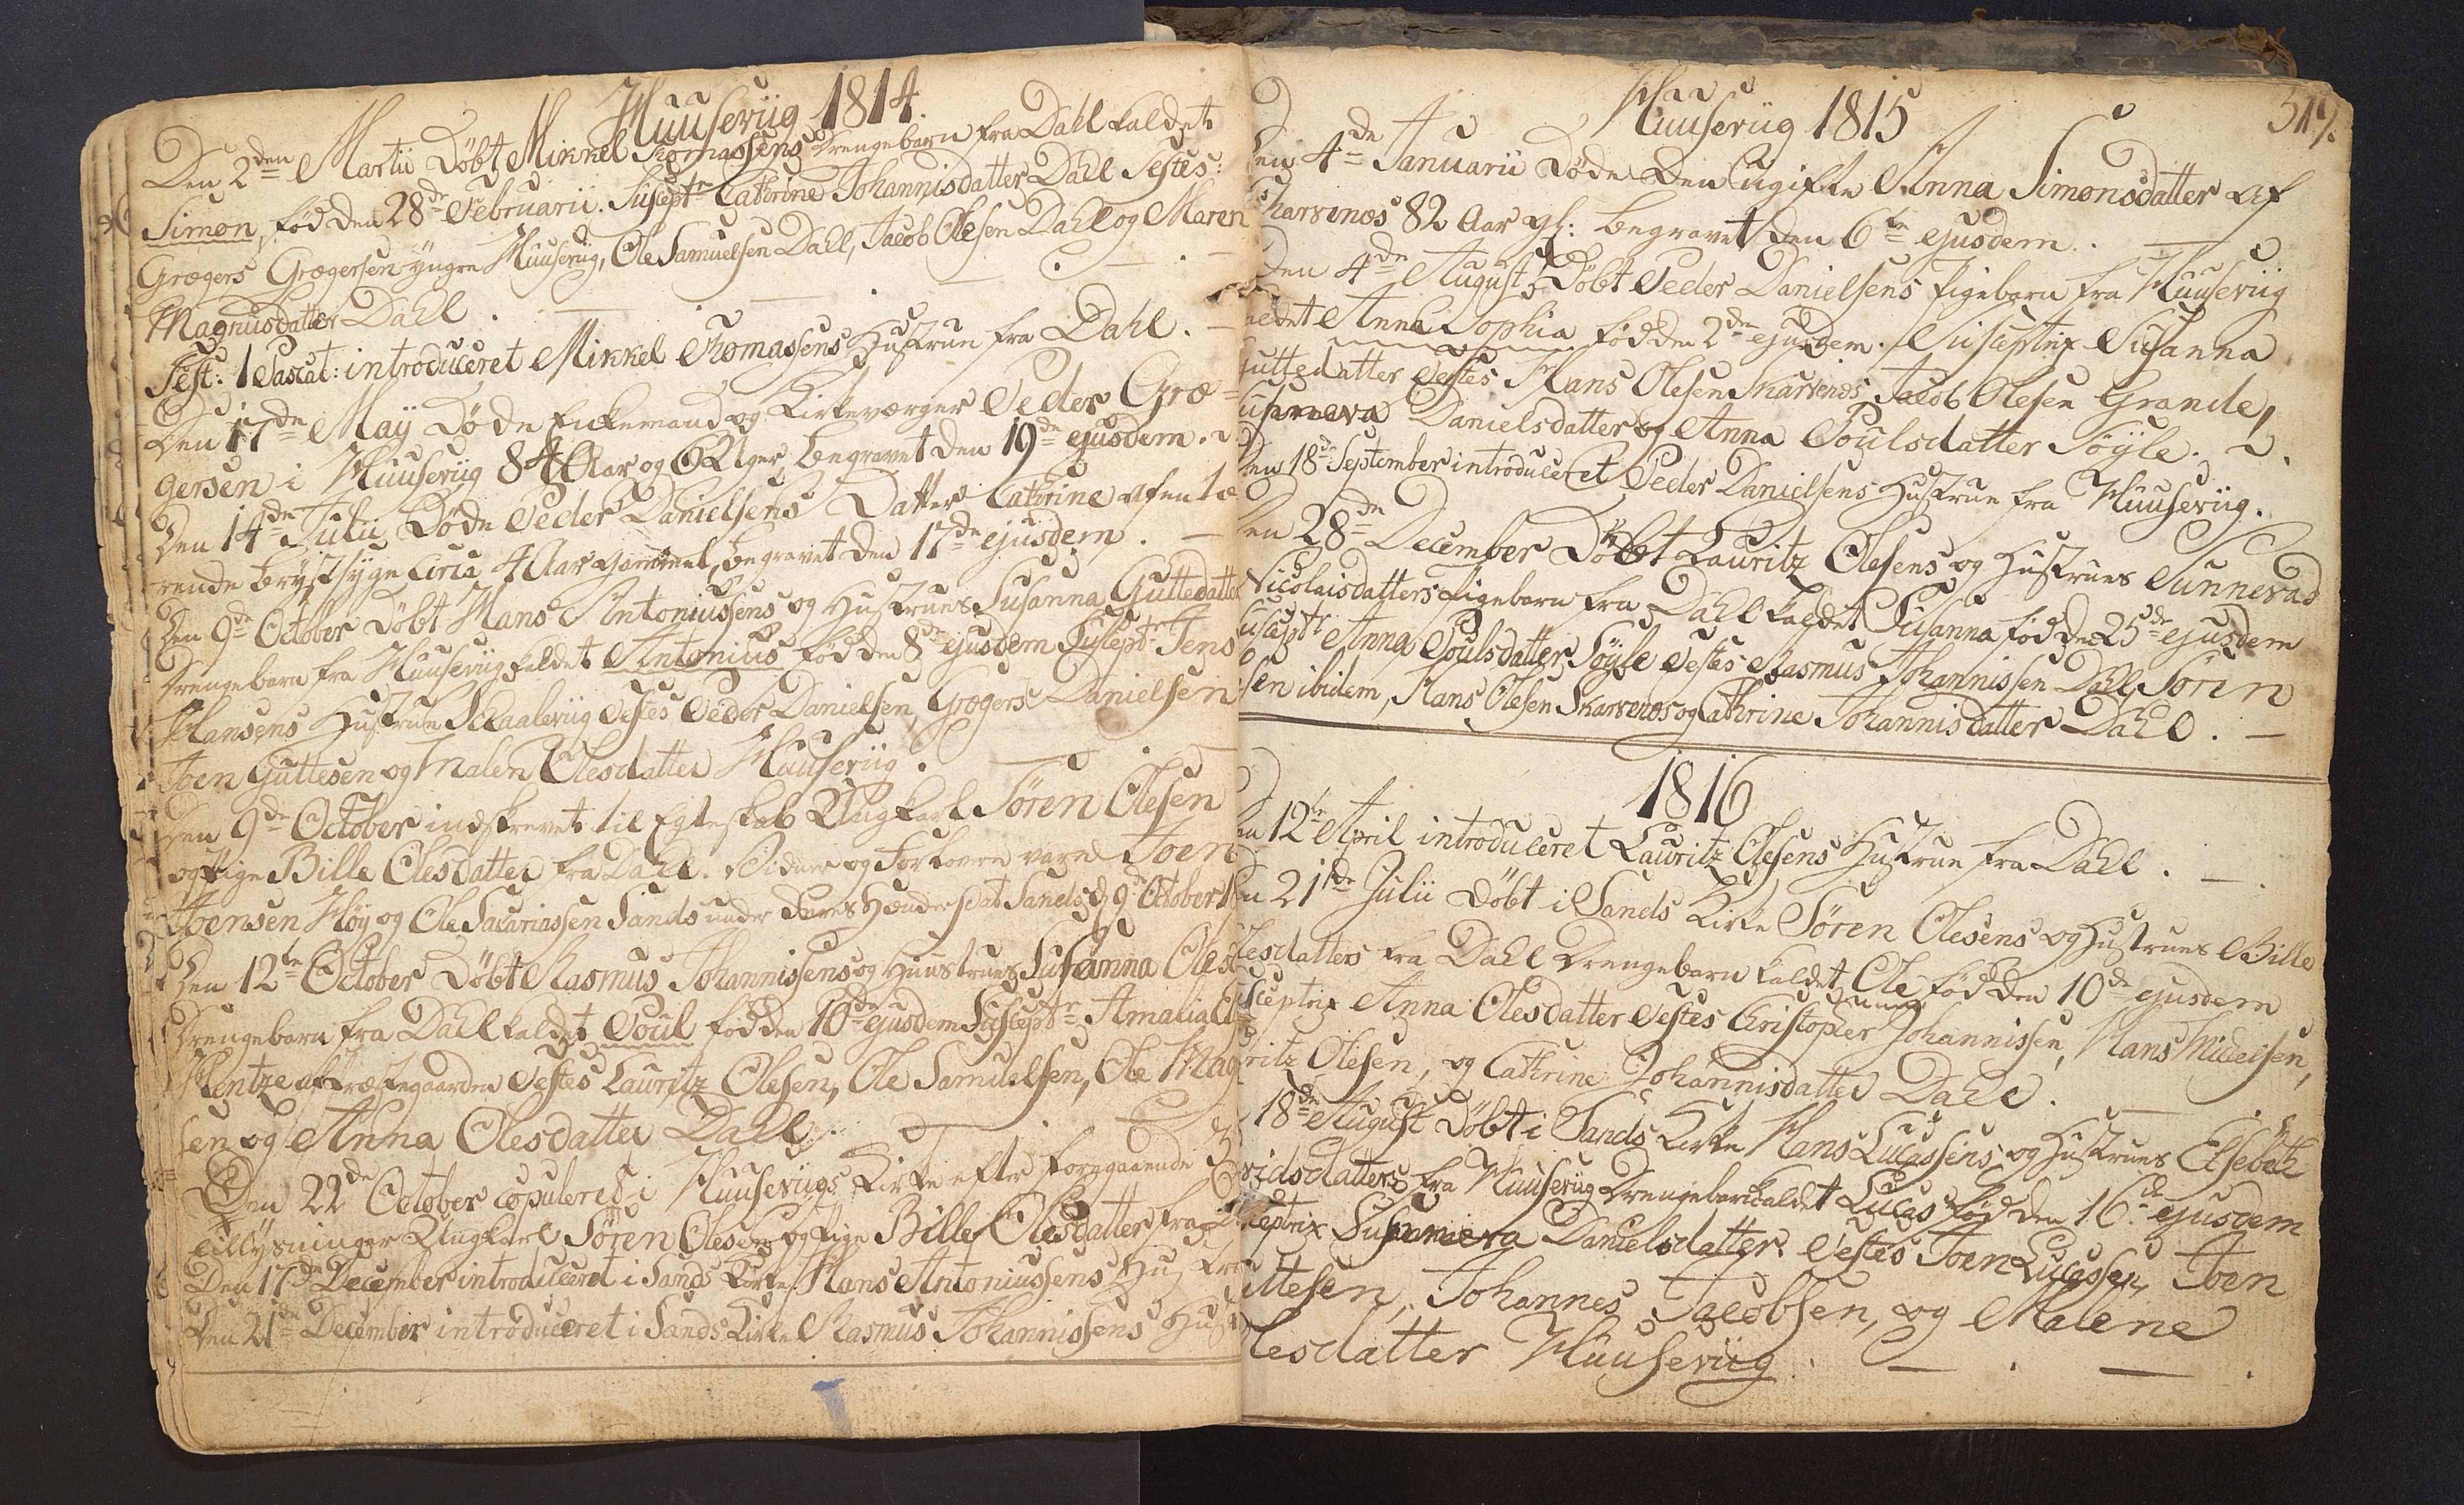 Huuseviig 1814.
Den 2den Martii Døbt Mikkel Thomassens Drengebarn fra Dahl kaldet
Simon, fød den 28de Februarii. Suscept: Cathrine Johannisdatter Dahl Testes:
Grægers Grægersen yngre Huuseviig, Ole Samuelsen Dahl, Jacob Olesen Dahl og Maren
Magnusdatter Dahl.
Fest: 1 Pascat: introduceret Mikkel Thomassens Hustrue fra Dahl.
Den 17de Maij Døde Enkemand og Kirkeværger Peder Græ-
gersen i Huuseviig 84 Aar og 6 Uger, begravet den 19de ejusdem.
Den 14de Julii Døde Peder Danielsens Datter Cathrine af en tæ
rende Brystsyge circa 4 Aar gammel, begravet den 17de ejusdem.
Den 9de October Døbt Hans Antoniussens og Hustrues Susanna Guttedatter
Drengebarn fra Huuseviig kaldet Antonius fød den 8de ejusdem Suscept: Jens
Hansens Hustrue Skaaleviig Testes Peder Danielsen, Grægers Danielsen
Joen Guttesen og Malen Olesdatter Huuseviig.
Den 9de October indskrevet til Egteskab Ungkarl Søren Olesen
og Pige Bille Olesdatter fra Dahl. Vidner og Forlovere vare Joen
Joensen Høy og Ole Sacariassen Sands under deres Hænder dat Sands d 9de October 1
Den 12te October Døbt Rasmus Johannissens og Huustrues Susanna Oles
Drengebarn fra Dahl kaldet Poul fød den 10de ejusdem Suscept: Amalia
Hentze af Præstegaarden Testes Lauritz Olesen, Ole Samuelsen, Ole Mag
sen og Anna Olesdatter Dahl.
Den 22de October copuleret i Huuseviigs Kirke efter foregaaende 3
tillysninger Ungkarl Søren Olesen og Pige Bille Olesdatter fra
Den 17de December introduceret i Sands Kirke Hans Antoniussens Hustrue
Den 21de December introduceret i Sands Kirke Rasmus Johannissens Hust
517.
Huuseviig 1815
Den 4de Januarii Døde Den ugifte Anna Simonsdatter af
Skarvenes 82 Aar gl: begravet den 6te ejusdem.
Den 4de August Døbt Peder Danielsens Pigebarn fra Huuseviig
kaldet Anna Sophia fød den 2den ejusdem. Susceptrix Susanna
Guttedatter Testes Hans Olesen Skarvenes, Jacob Olesen Grande,
Danielsdatter og Anna Poulsdatter Søyle.
Den 18de September introduceret Peder Danielsens Hustrue fra Huuseviig.
Den 28de December Døbt Lauritz Olesens og Hustrues Sunneva
Nicolaisdatters Pigebarn fra Dahl kaldet Susanna fød den 25de ejusdem
Suscept: Anna Poulsdatter Søyle Testes Rasmus Johannissen Dahl, Søren
sen ibidem, Hans Olesen Skarvenes og Cathrine Johannisdatter Dahl.
1816
Den 12te April introduceret Lauritz Olesens Hustrue fra Dahl.
Den 21de Julii Døbt i Sands Kirke Søren Olesens og Hustrues Bille
Olesdatters fra Dahl Drengebarn kaldet Ole fød den 10de ejusdem
Susceptrix Anna Olesdatter Testes Christopher Johannissen, Hans Mickelsen,
ritz Olesen, og Cathrine Johannisdatter Dahl.
18de August Døbt i Sands Kirke Hans Lucassens og Hustrues Elsebeth
vidsdatters fra Huuseviig Drengebarn kaldet Lucas fød den 16de ejusdem
ceptrix Danielsdatter. Testes Joen Lucassen, Joen
uttesen, Johannes Jacobsen, og Malene
lesdatter Huuseviig.